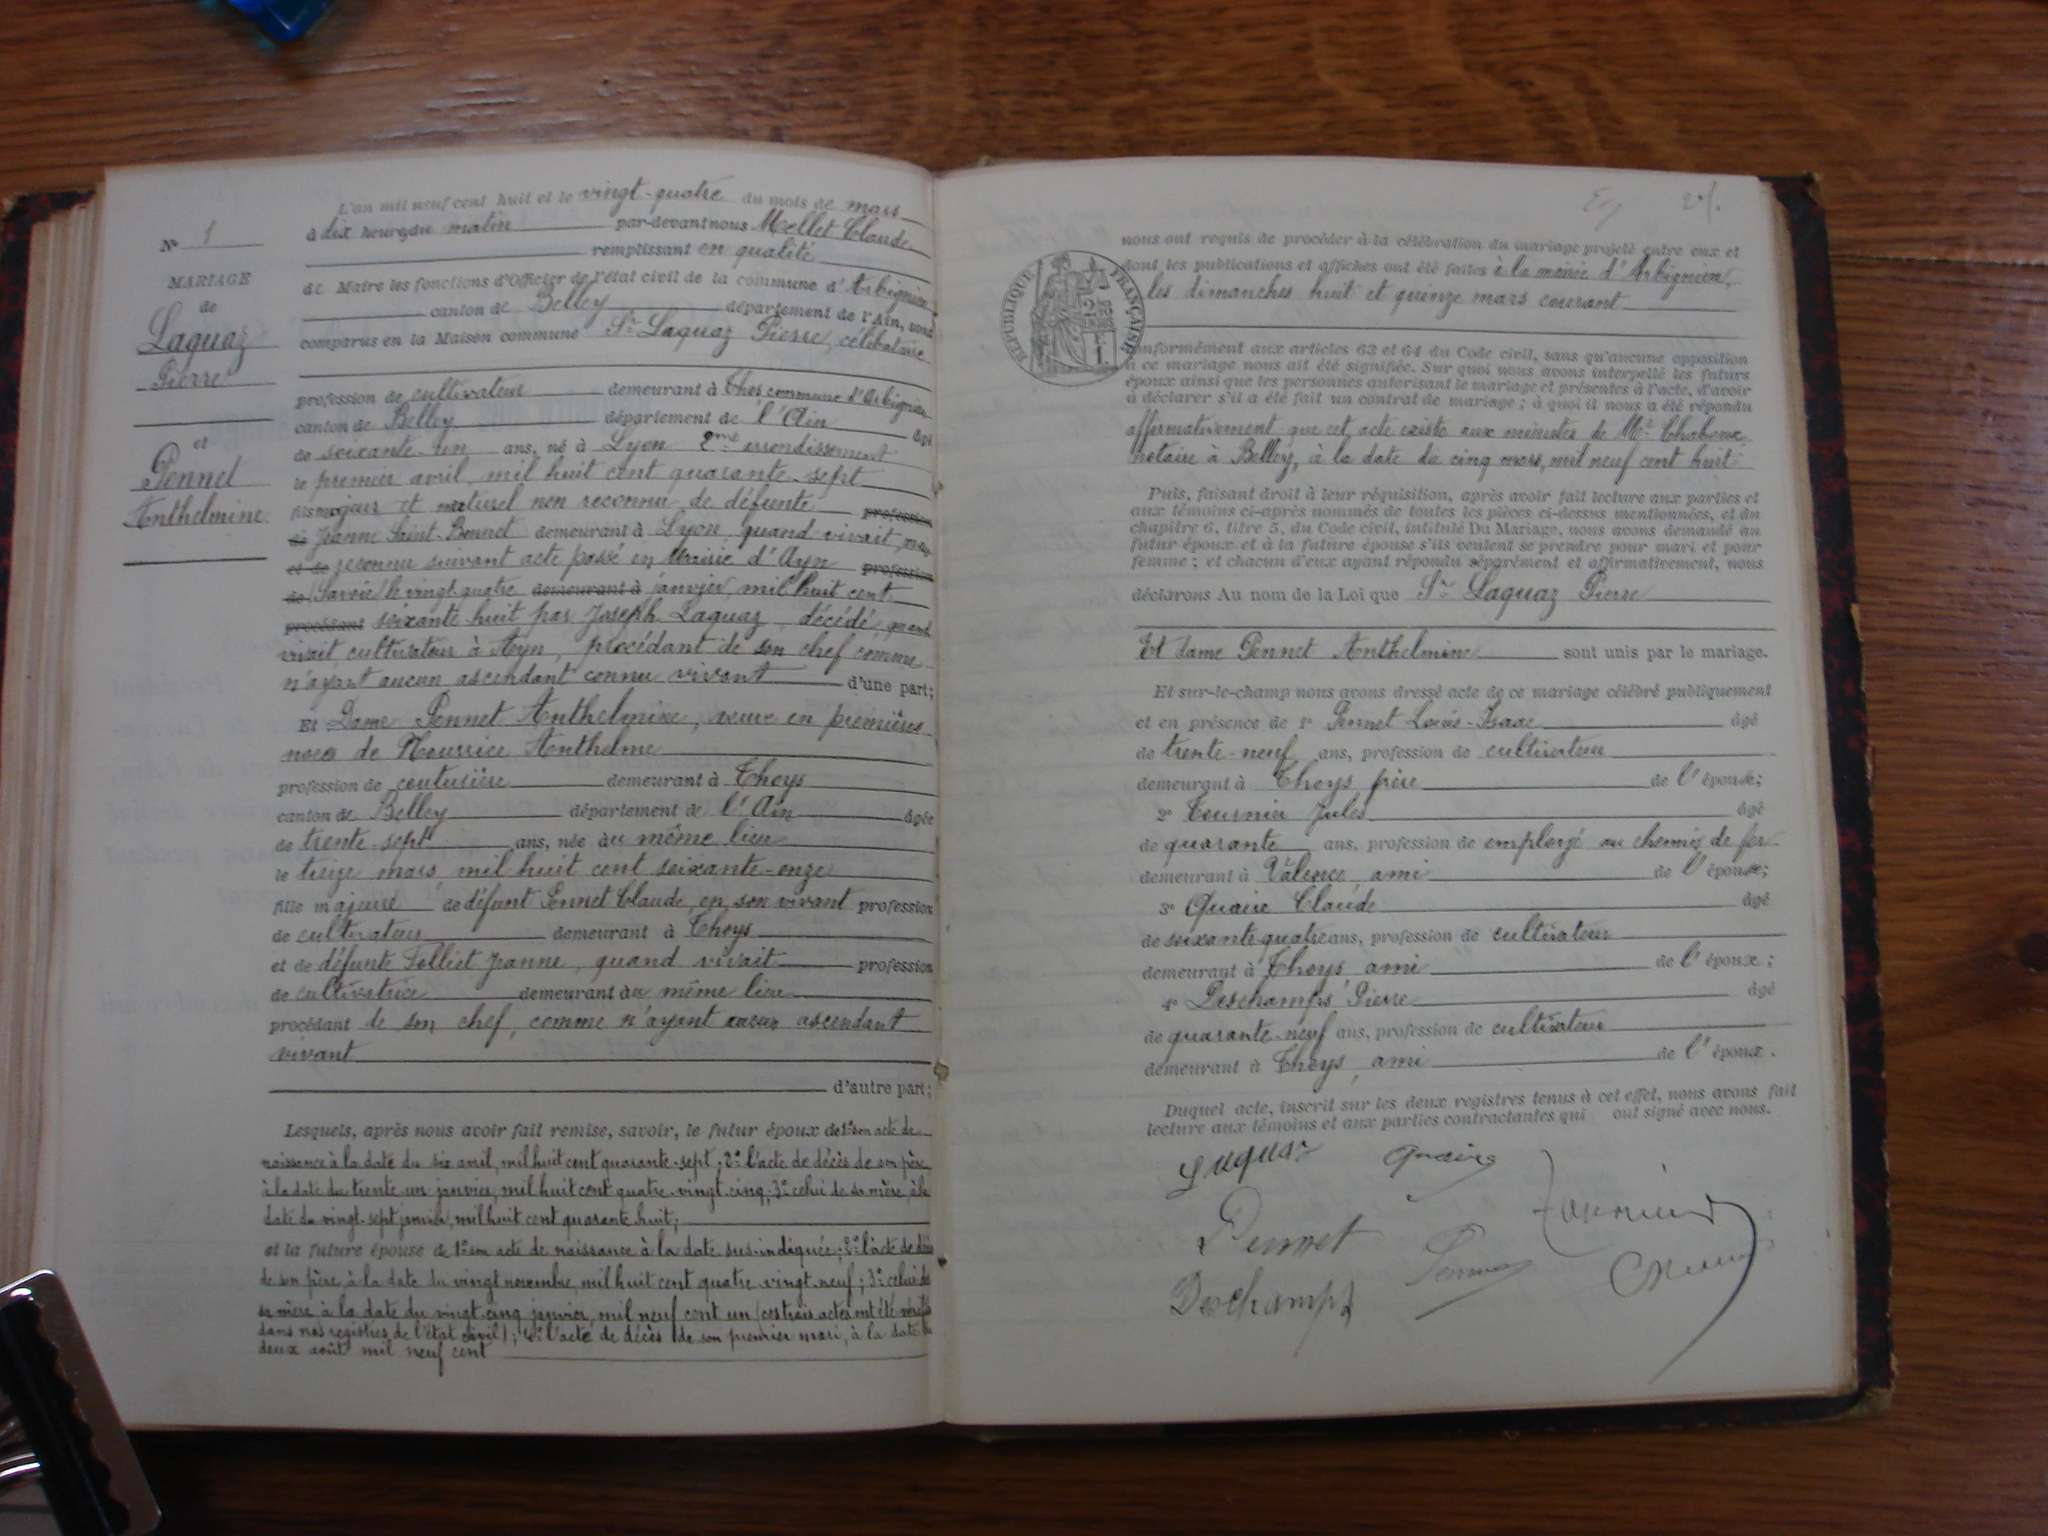 L'an mil neuf cent huit et le vingt-quatre du mois de mars
à dix heures du matin par-devant nous Mellet Claude
remplissant en qualité
de Maire les fonctions d'Officier de l'état civil de la commune d'Arbignieu
canton de Belley département de l'Ain, sont
comparus en la Maison commune Sr Laquaz Pierre, célibataire
profession de cultivateur demeurant à Thoys commune d'Arbignieu
canton de Belley département de l'Ain âgé
de soixante un ans, né à Lyon 2me arrondissement
le premier avril, mil huit cent quarante-sept
fils majeur et naturel non reconnu de défunte profession
de Jeanne Saint-Bonnet demeurant à Lyon, quand vivait,
et de reconnu suivant acte passé en Mairie d'Ayn profession
de (Savoie) le vingt-quatre demeurant à janvier, mil huit cent
procédant soixante huit par Joseph Laquaz, décédé, quand
vivait, cultivateur à Ayn, procédant de son chef comme
n'ayant aucun ascendant connu vivant d'une part;
Et Dame Pennet Anthelmine, veuve en premières
noces de Nourrice Anthelme
profession de couturière demeurant à Thoys
canton de Belley département de l'Ain âgée
de trente-sept ans, née au même lieu
le treize mars mil huit cent soixante-onze
fille majeure de défunt Pennet Claude, en son vivant profession
de cultivateur demeurant à Thoys
et de défunte Jeanne, quand vivait profession
de cultivatrice demeurant au même lieu
procédant de son chef, comme n'ayant aucun ascendant
vivant
d'autre part;
Lesquels, après nous avoir fait remise, savoir, le futur époux de 1° son acte de
naissance à la date du six avril, mil huit cent quarante-sept; 2° l'acte de décès de son père
à la date du trente un janvier, mil huit cent quatre-vingt-cinq; 3° celui de sa mère, à la
date du vingt-sept janvier, mil huit cent quarante huit;
et la future épouse de 1° son acte de naissance à la date sus-indiquée; 2° l'acte de décès
de son père, à la date du vingt novembre, mil huit cent quatre-vingt-neuf; 3° celui de
sa mère à la date du vingt-cinq janvier, mil neuf cent un (ces trois actes ont été vérifiés
dans nos registres de l'état civil); 4° l'acte de décès de son premier mari, à la date du
deux août mil neuf cent
N° 1
MARIAGE
de
Laquaz
Pierre
et
Pennet
Anthelmine
nous ont requis de procéder à la célébration du mariage projeté entre eux et
dont les publications et affiches ont été faites à la mairie d'Arbignieu,
les dimanches huit et quinze mars courant
RÉPUBLIQUE FRANÇAISE
conformément aux articles 63 et 64 du Code civil, sans qu'aucune opposition
à ce mariage nous ait été signifiée. Sur quoi nous avons interpellé les futurs
époux ainsi que les personnes autorisant le mariage et présentes à l'acte, d'avoir
à déclarer s'il a été fait un contrat de mariage; à quoi il nous a été répondu
affirmativement que cet acte existe aux minutes de Me
notaire à Belley, à la date du cinq mars, mil neuf cent huit
Puis, faisant droit à leur réquisition, après avoir fait lecture aux parties et
aux témoins ci-après nommés de toutes les pièces ci-dessus mentionnées, et du
chapitre 6, titre 5, du Code civil, intitulé Du Mariage, nous avons demandé au
futur époux et à la future épouse s'ils veulent se prendre pour mari et pour
femme; et chacun d'eux ayant répondu séparément et affirmativement, nous
déclarons Au nom de la Loi que Sr Laquaz Pierre
Et dame Pennet Anthelmine sont unis par le mariage.
Et sur-le-champ nous avons dressé acte de ce mariage célébré publiquement
et en présence de 1° Pennet Louis-Isaac âgé
de trente-neuf ans, profession de cultivateur
demeurant à Thoys frère de l'épouse;
2° Tournier Jules âgé
de quarante ans, profession de employé au chemin de fer
demeurant à Valence ami de l'épouse;
3° Quaire Claude âgé
de soixante quatre ans, profession de cultivateur
demeurant à Thoys, ami de l'époux;
4° Deschamps Pierre âgé
de quarante-neuf ans, profession de cultivateur
demeurant à Thoys, ami de l'époux.
Duquel acte, inscrit sur les deux registres tenus à cet effet, nous avons fait
lecture aux témoins et aux parties contractantes qui ont signé avec nous.
Laquaz Quaire
Pennet Pennet Tournier
Deschamps